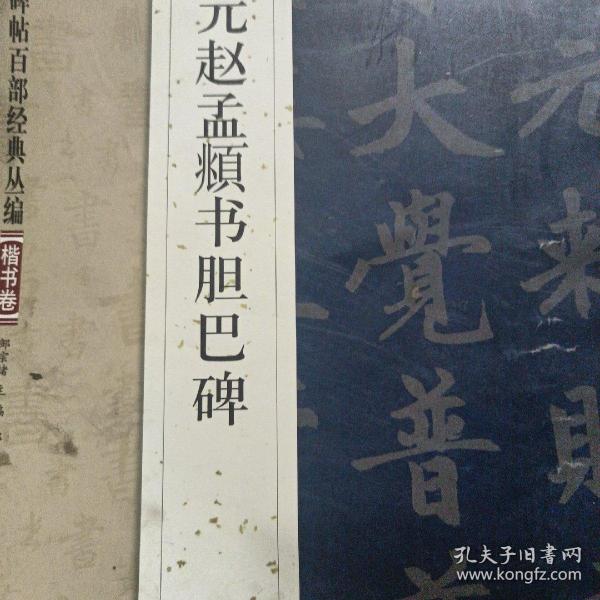 碑帖百部经典丛编
楷书卷
元赵孟頫书胆巴碑
元来
大覺普
孔夫子旧书网
www.kongfz.com